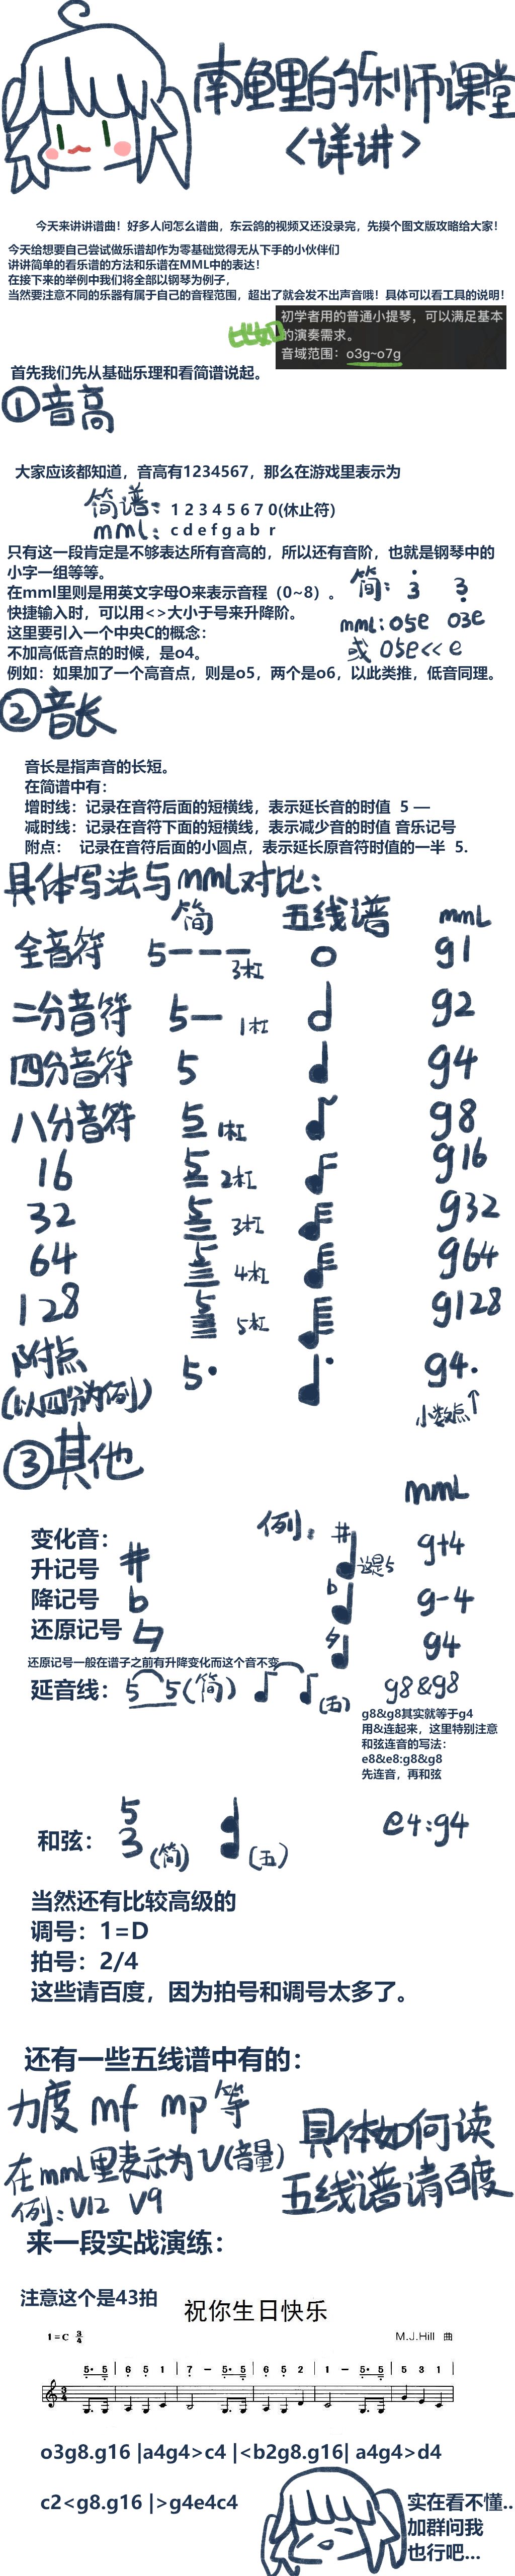 南鱼里的乐师课堂
<详讲>
今天来讲讲谱曲！好多人问怎么谱曲，东云鸽的视频又还没录完，先摸个图文版攻略给大家！
今天给想要自己尝试做乐谱却作为零基础觉得无从下手的小伙伴们
讲讲简单的看乐谱的方法和乐谱在MML中的表达！
在接下来的举例中我们将全部以钢琴为例子，
当然要注意不同的乐器有属于自己的音程范围，超出了就会发不出声音哦！具体可以看工具的说明！
初学者用的普通小提琴，可以满足基本
的演奏需求。
音域范围：o3g~o7g
比如
首先我们先从基础乐理和看简谱说起。
①音高
大家应该都知道，音高有1234567，那么在游戏里表示为
简谱：1 2 3 4 5 6 7 0(休止符)
mml：c d e f g a b r
只有这一段肯定是不够表达所有音高的，所以还有音阶，也就是钢琴中的
小字一组等等。
在mml里则是用英文字母O来表示音程（0~8）。
快捷输入时，可以用<>大小于号来升降阶。
这里要引入一个中央C的概念：
不加高低音点的时候，是o4。
例如：如果加了一个高音点，则是o5，两个是o6，以此类推，低音同理。
简：3 3
mml：o5e o3e
或 o5e<<e
②音长
音长是指声音的长短。
在简谱中有：
增时线：记录在音符后面的短横线，表示延长音的时值 5 —
减时线：记录在音符下面的短横线，表示减少音的时值 音乐记号
附点： 记录在音符后面的小圆点，表示延长原音符时值的一半 5.
具体写法与mml对比：
简 五线谱 mml
全音符 5——— 3杠 g1
二分音符 5— 1杠 g2
四分音符 5 g4
八分音符 5 1杠 g8
16 5 2杠 g16
32 5 3杠 g32
64 5 4杠 g64
128 5 5杠 g128
附点 5· g4.
(以四分为例) 小数点↑
③其他
mml
变化音： 例：
升记号 # # 这是5 g+4
降记号 b b g-4
还原记号 ♮ ♮ g4
还原记号一般在谱子之前有升降变化而这个音不变
延音线：5 5(简) (五) g8&g8
g8&g8其实就等于g4
用&连起来，这里特别注意
和弦连音的写法：
e8&e8:g8&g8
先连音，再和弦
和弦： 5
3 (简) (五) e4:g4
当然还有比较高级的
调号：1=D
拍号：2/4
这些请百度，因为拍号和调号太多了。
还有一些五线谱中有的：
力度 mf mp等
在mml里表示为V(音量)
例：V12 V9
具体如何读
五线谱请百度
来一段实战演练：
注意这个是43拍
祝你生日快乐
1=C 3/4
M.J.Hill 曲
5· 5 | 6 5 1 | 7 – 5· 5 | 6 5 2 | 1 – 5· 5 | 5 3 1 |
o3g8.g16 |a4g4>c4 |<b2g8.g16| a4g4>d4
c2<g8.g16 |>g4e4c4
实在看不懂..
加群问我
也行吧...